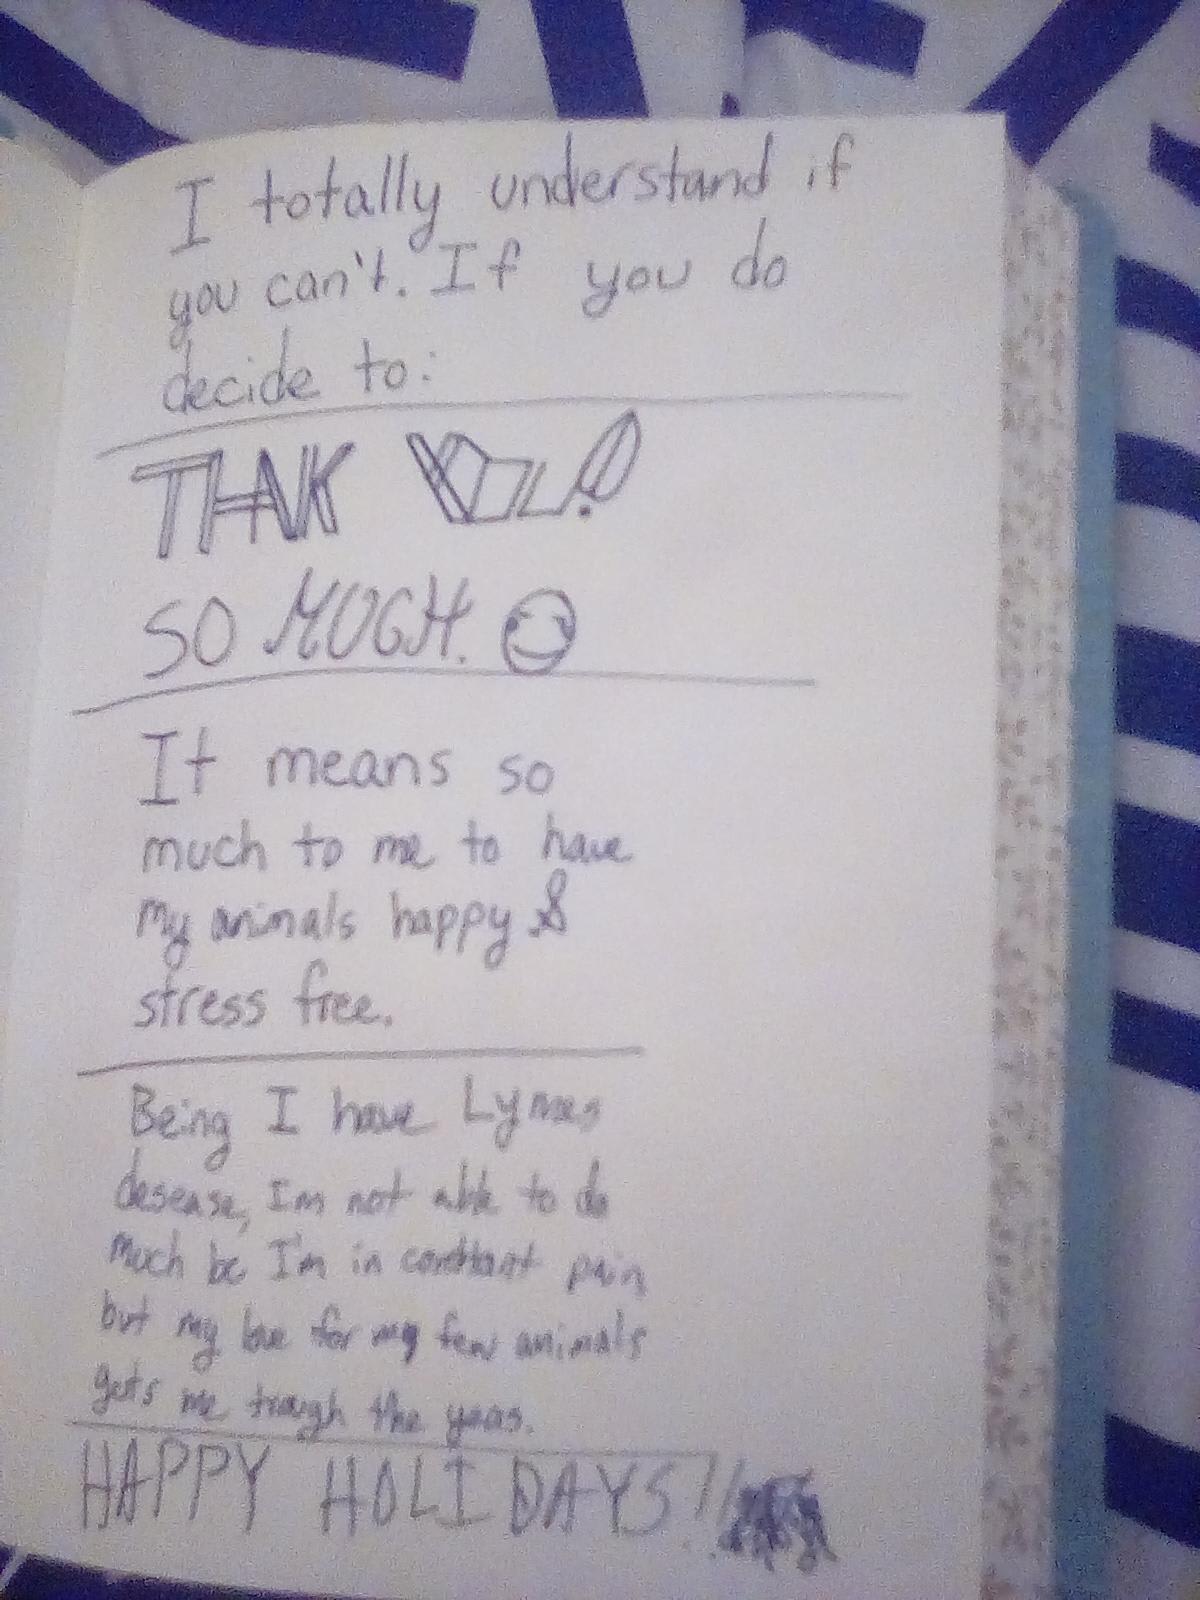 I totally understand if
you can't. If you do
decide to:
THNK YOU!
SO MUCH.
It means so
much to me to have
my animals happy &
stress free.
Being I have Lymes
desease, I'm not able to do
much bc I'm in constant pain,
but my love for my few animals
gets me trough the yeas.
HAPPY HOLIDAYS!!